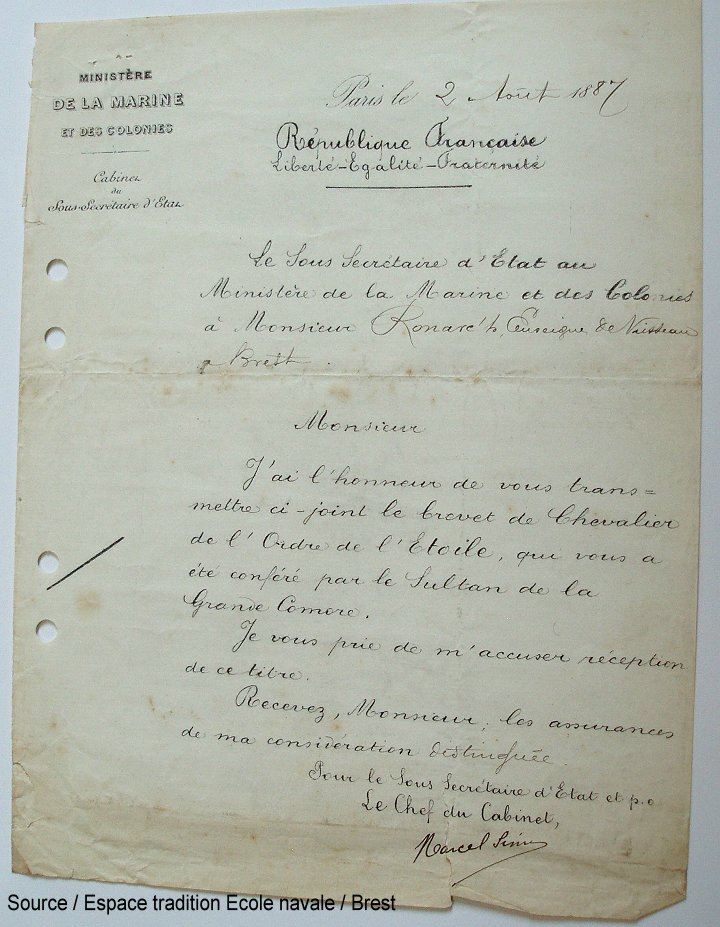 MINISTÈRE
DE LA MARINE
ET DES COLONIES
Cabinet
du
Sous-Secrétaire d'Etat
Paris le 2 Août 1887
République Française
Liberté-Egalité-Fraternité
Le Sous Secrétaire d'Etat au
Ministère de la Marine et des Colonies
à Monsieur Ronarc'h, Enseigne de Vaisseau
à Brest.
Monsieur
J'ai l'honneur de vous trans=
mettre ci-joint le brevet de Chevalier
de l'Ordre de l'Etoile, qui vous a
été conféré par le Sultan de la
Grande Comore.
Je vous prie de m'accuser réception
de ce titre.
Recevez, Monsieur, les assurances
de ma considération distinguée.
Pour le Sous Secrétaire d'Etat et p.o
Le Chef du Cabinet,
Marcel
Source / Espace tradition Ecole navale / Brest